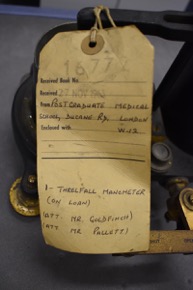 1677
Received Book No.
Received 27 NOV 1962
From POSTGRADUATE MEDICAL
SCHOOL, DUCANE RD. LONDON
Enclosed with W.12
1 - THRELFALL MANOMETER
(ON LOAN)
(ATT. MR. GOLDFINCH)
(ATT MR. PALLETT)